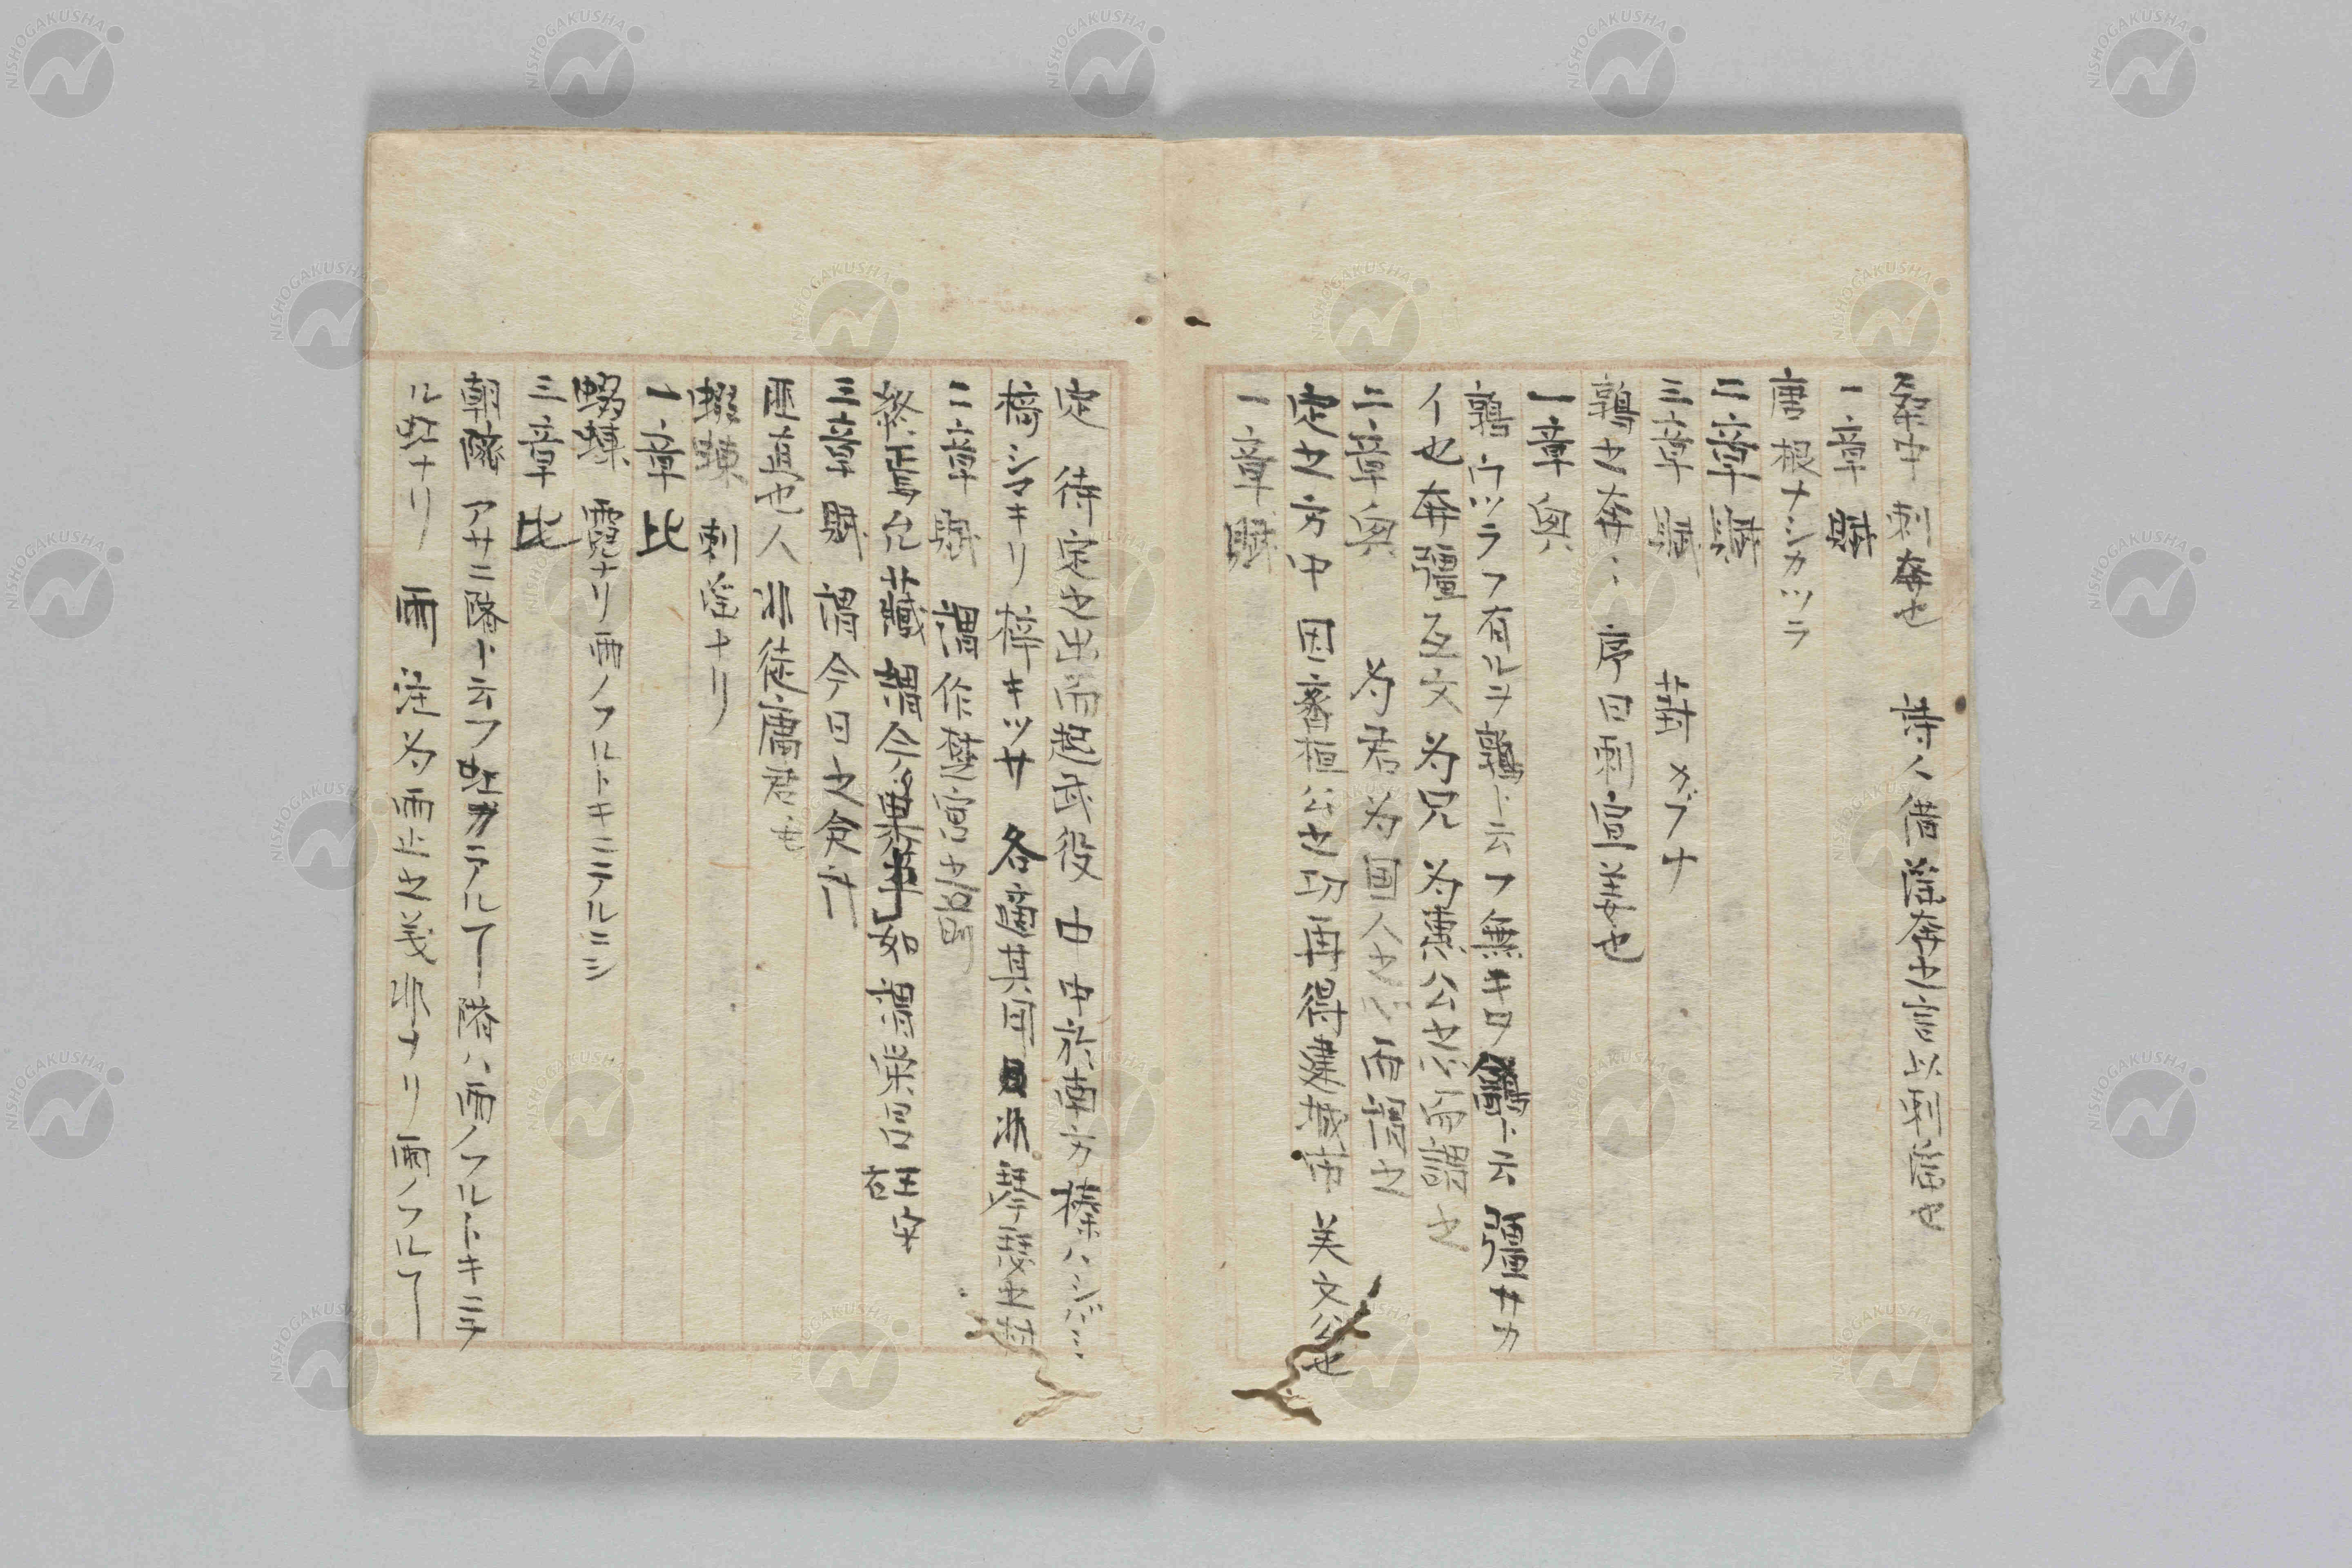 桑中 刺奔也 詩人借淫奔之言以刺淫也
一章 賦
唐 根ナシカツラ
二章 賦
三章 賦 葑 カブナ
鶉之奔〻 序曰刺宣姜也
一章 興
鶉 ウツラ フ有ルヲ鶉ト云フ無キヲ鷃ト云 彊 サカ
イ也 奔彊互文 为兄 为惠公之 而謂之
二章 興 为君 为国人之 而謂之
定之方中 因齊桓公之功再得建城市 美文公也
一章 賦
定 待定之出而起武役 中 中於南方 榛 ハシバミ
椅 シマキリ 梓 キツサ 各適其用 非琴瑟之
二章 賦 謂作楚宮之
終焉允藏 謂今果
三章 賦 謂今日之
匪直也人 非徒庸君也
蝃蝀 刺淫ナリ
一章 比
蝃蝀 霓ナリ雨ノフルトキニテルニシ
三章 比
朝隮 アサニ隮ト云フ カアルヿ 隮ハ雨ノフルトキニヲ
ル ナリ 雨 注为雨止之義非ナリ雨ノフルヿ
NISHOGAKUSHA